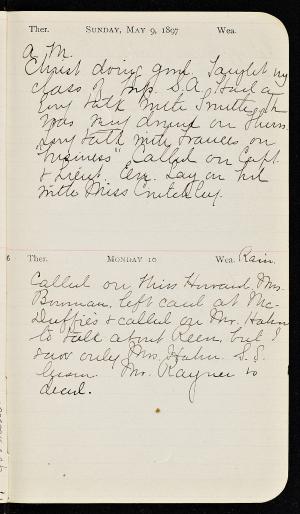 Ther. SUNDAY, MAY 9, 1897 Wea.
A. M.
Christ doing good. Taught my
class of S.A. Had a
long talk with
was very down on them.
Long talk with Frances on
"business". Called on Capt.
& Lieut. Lay on bed
with Miss Critchley.
6 Ther. MONDAY 10 Wea. Rain.
Called on Miss Howard, Mrs.
Bowman, left card at Mc-
Duffies & called on Mr. Hahn
to talk about Keen, but I
saw only Mrs. Hahn. S.S.
lesson. Mr. Rayner is
dead.